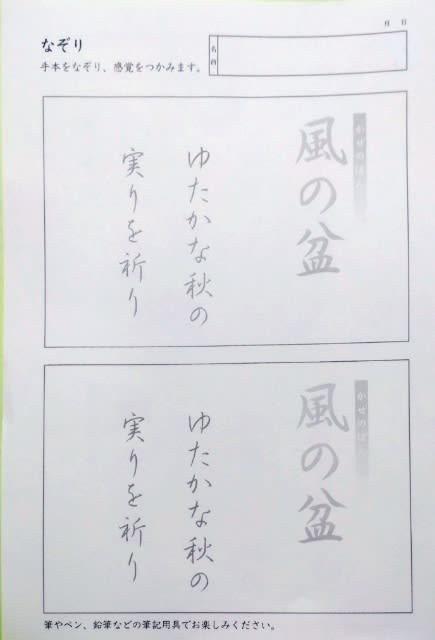 月 日
なぞり
手本をなぞり、感覚をつかみます。
名前
かぜのぼん
風の盆
ゆたかな秋の
実りを祈り
かせのぼん
風の盆
ゆたかな秋の
実りを祈り
筆やペン、鉛筆などの筆記用具でお楽しみください。